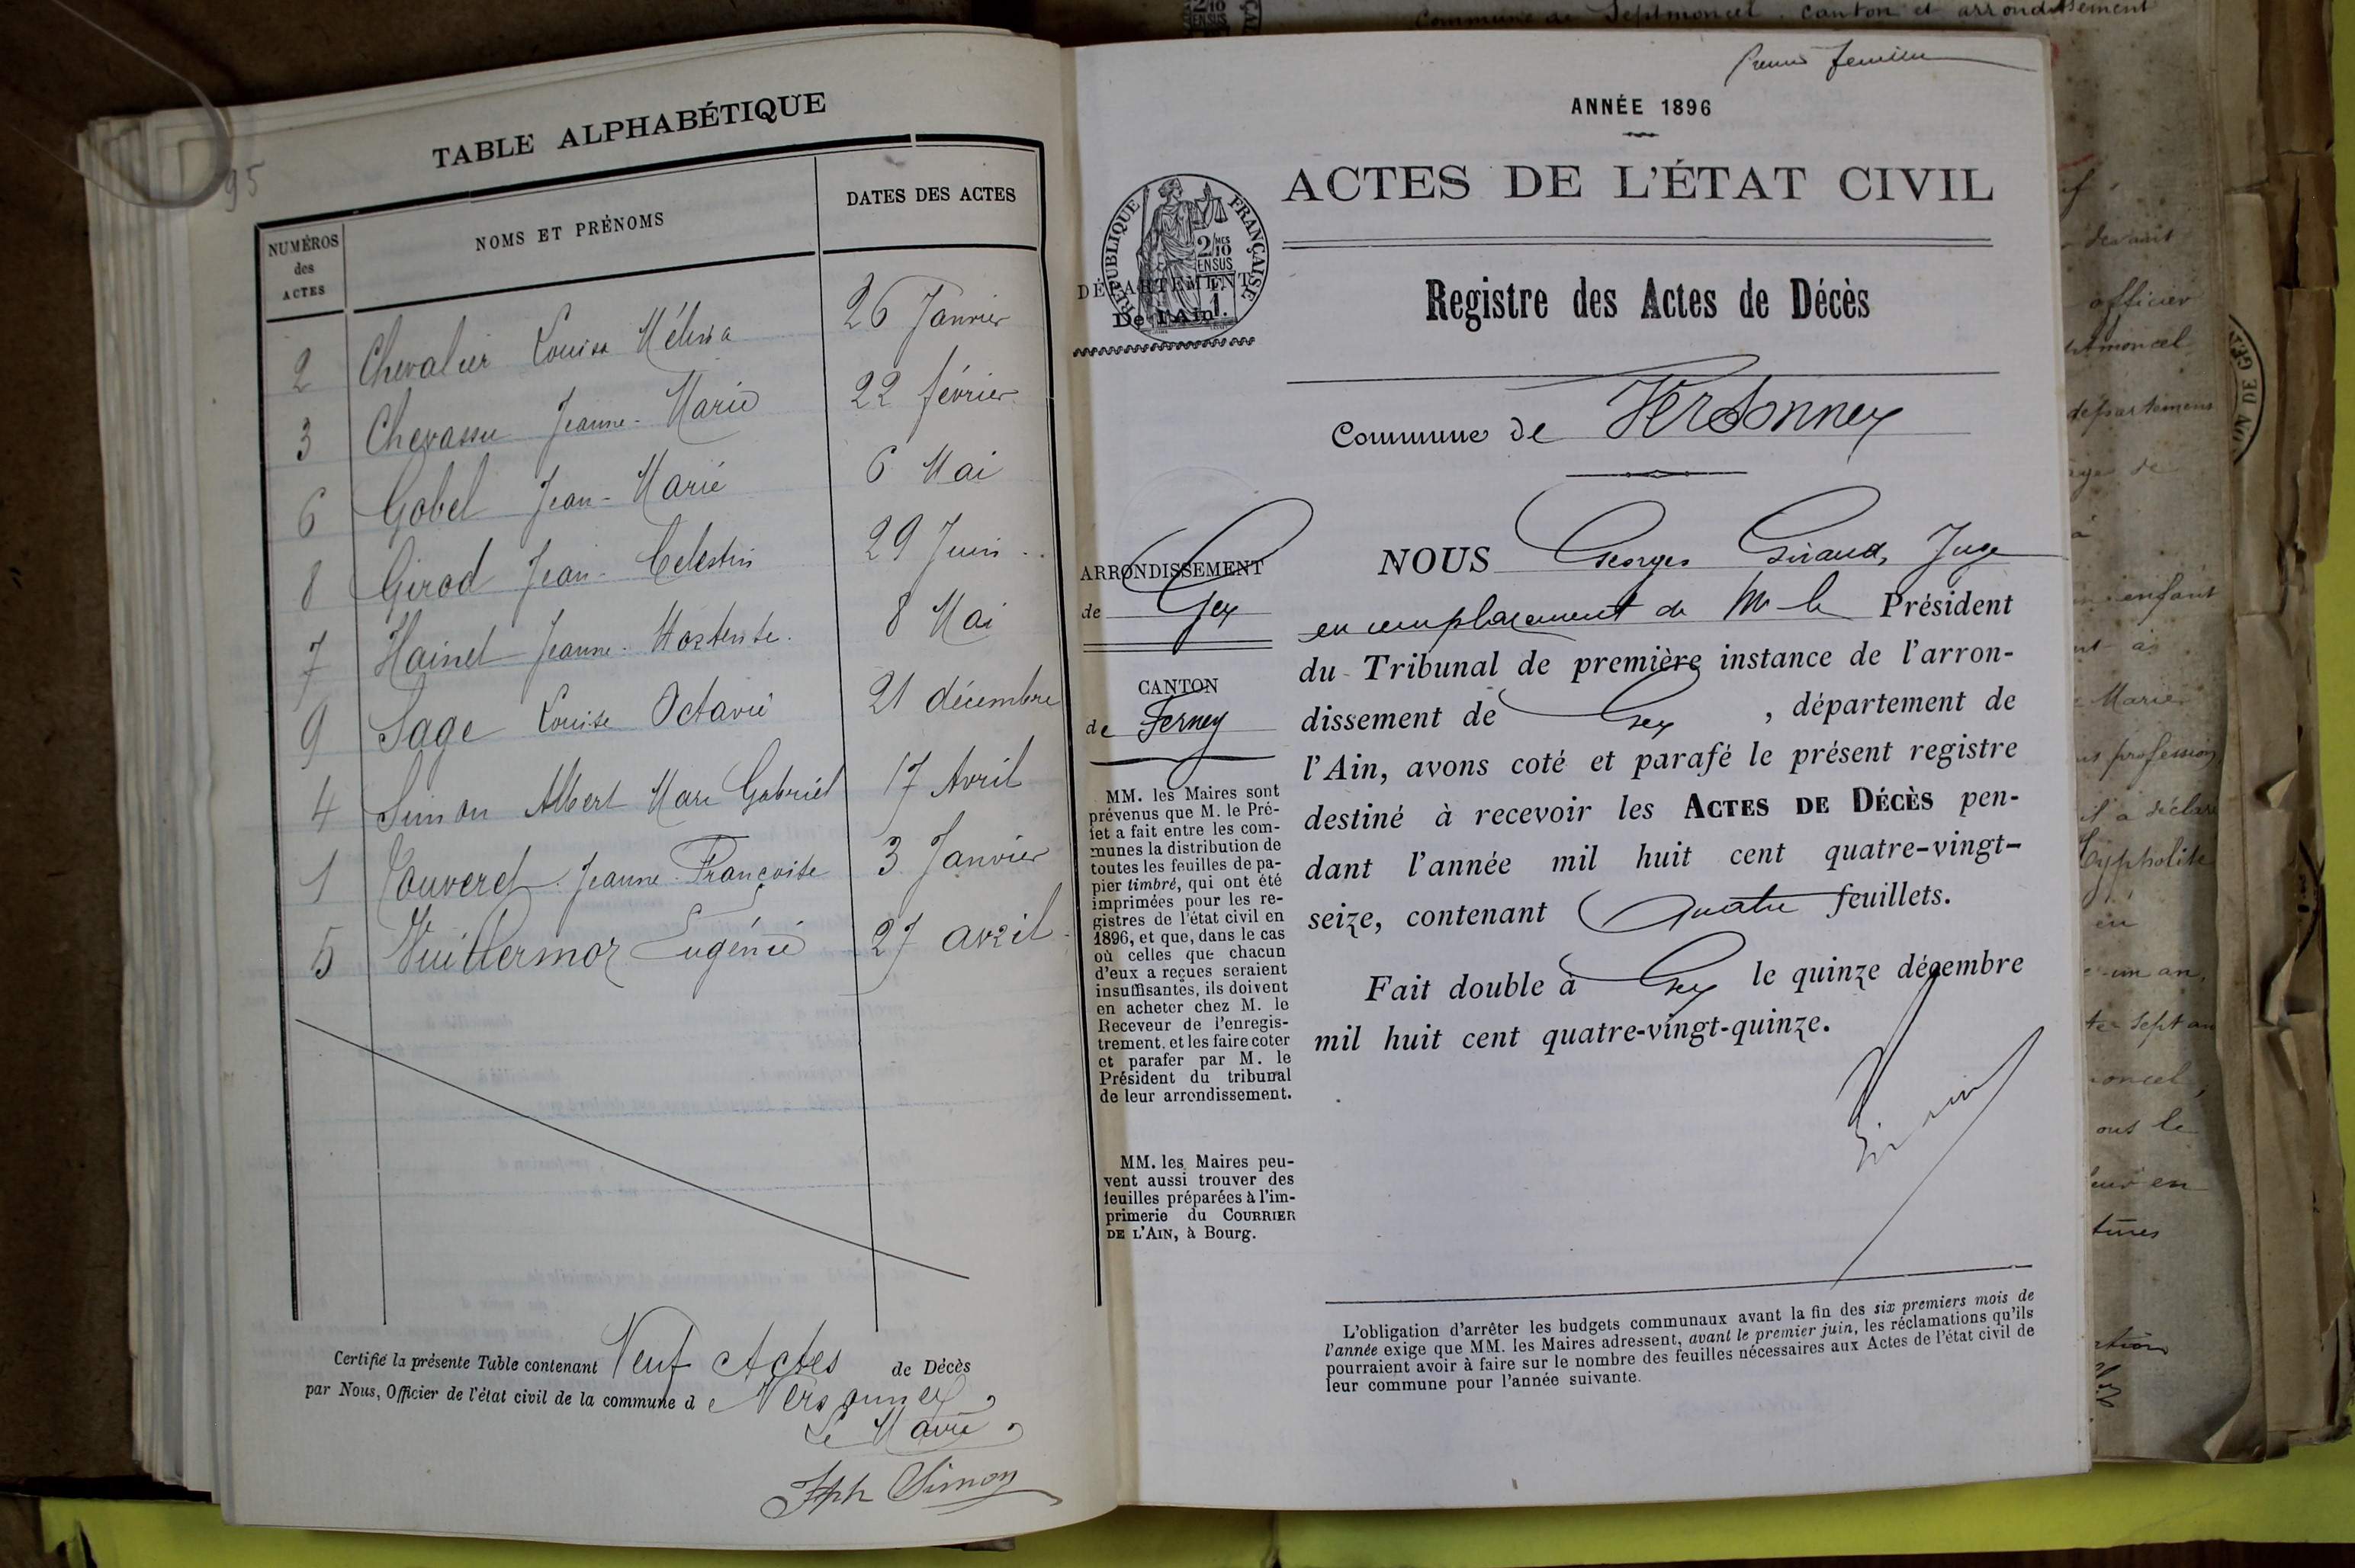 95
TABLE ALPHABÉTIQUE
NUMÉROS des ACTES
NOMS ET PRÉNOMS
DATES DES ACTES
2 Chevalier Louise Mélina 26 Janvier
3 Chevassu Jeanne-Marie 22 février
6 Gobel Jean-Marie 6 Mai
8 Girod Jean-Celestin 29 Juin
7 Hainel Jeanne-Hortense. 8 Mai
9 Sage Louise Octavie 21 décembre
4 Simon Albert Marc Gabriel 17 Avril
1 Jeanne-Françoise 3 Janvier
5 Vuillermoz Eugénie 27 avril
Certifié la présente Table contenant Neuf Actes de Décès
par Nous, Officier de l'état civil de la commune de Versonnex,
Le Maire,
Jph Simon
Premier feuillet
ANNÉE 1896
ACTES DE L'ÉTAT CIVIL
RÉPUBLIQUE FRANÇAISE
2/10 EN SUS
DÉPARTEMENT
De l'Ain.
Registre des Actes de Décès
Commune de Versonnex
ARRONDISSEMENT
de Gex
CANTON
de Ferney
MM. les Maires sont
prévenus que M. le Pré-
fet a fait entre les com-
munes la distribution de
toutes les feuilles de pa-
pier timbré, qui ont été
imprimées pour les re-
gistres de l'état civil en
1896, et que, dans le cas
où celles que chacun
d'eux a reçues seraient
insuffisantes, ils doivent
en acheter chez M. le
Receveur de l'enregis-
trement, et les faire coter
et parafer par M. le
Président du tribunal
de leur arrondissement.
MM. les Maires peu-
vent aussi trouver des
feuilles préparées à l'im-
primerie du COURRIER
DE L'AIN, à Bourg.
NOUS Georges Giraud, Juge
en remplacement de Mr le Président
du Tribunal de première instance de l'arron-
dissement de Gex, département de
l'Ain, avons coté et parafé le présent registre
destiné à recevoir les ACTES DE DÉCÈS pen-
dant l'année mil huit cent quatre-vingt-
seize, contenant quatre feuillets.
Fait double à Gex le quinze décembre
mil huit cent quatre-vingt-quinze.
L'obligation d'arrêter les budgets communaux avant la fin des six premiers mois de
l'année exige que MM. les Maires adressent, avant le premier juin, les réclamations qu'ils
pourraient avoir à faire sur le nombre des feuilles nécessaires aux Actes de l'état civil de
leur commune pour l'année suivante.
Commune de Septmoncel. canton et arrondissement
devant
officier
enfant
Marie
profession
il a déclaré
un an,